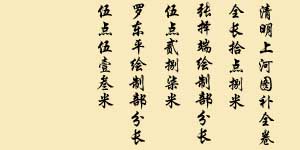 清明上河图补全卷
全长拾点捌米
张择端绘制部分长
伍点贰捌柒米
罗东平绘制部分长
伍点伍壹叁米